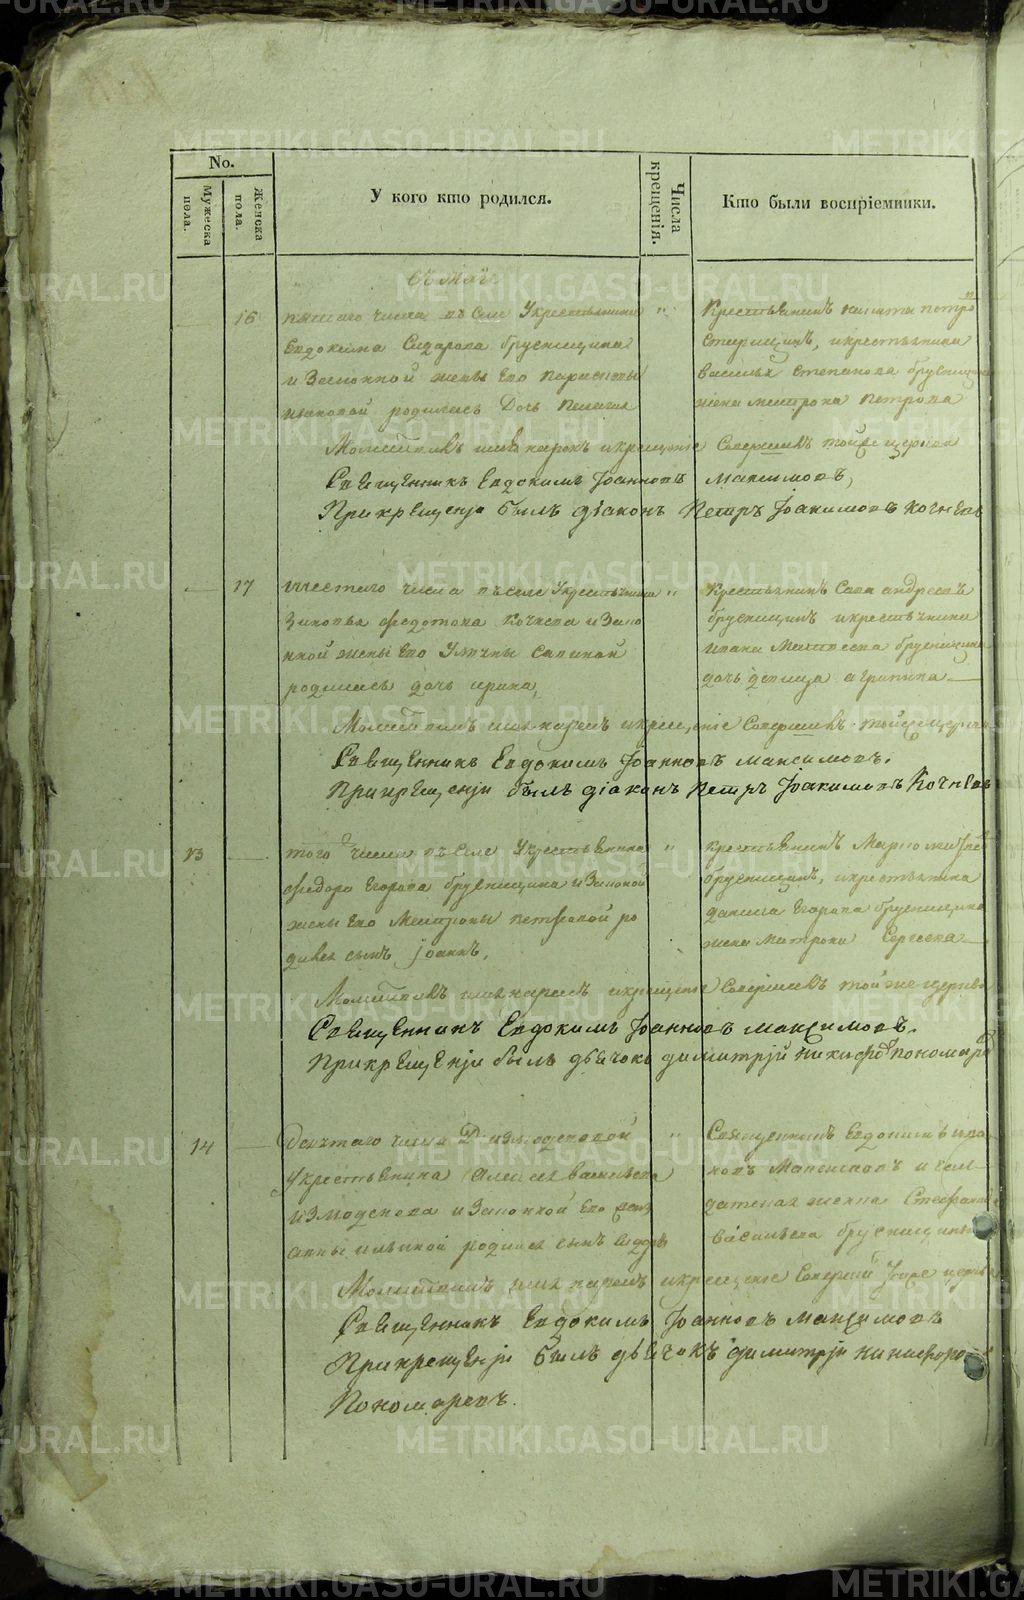 No.
Мужеска пола.
Женска пола.
У кого кто родился.
Числа крещенія.
Кто были воспріемники.
въ маѣ
16
пятаго числа въ селе Укрестьянина
Евдокима Сидарова брусницина
и Законной жены Его Парасковьи
родилась Дочь Пелагия
„
Крестьянинъ петро
икрестьянина
василья Степанова брусницина
жена матрона Петрова
Молитвовъ имянарекъ икрещение Совершивъ тойже церкви
Священникъ Евдокимъ Іоанновъ Максимовъ,
Прикрещеніи былъ діаконъ Петръ Іоакимовъ Кочневъ
17
шестаго числа въселе Укрестьянина
Зиновья федотова Кочнева иЗако
нной жены Его Улияны Савиной
родилась дочь ирина,
„
Крестьянинъ Сава андреевъ
брусницинъ икрестьянина
ивана Матвеева брусницина
дочь девица агрипина
Молитвовъ имянарекъ икрещение Совершивъ тойжецеркви
Священникъ Евдокимъ Іоанновъ максимовъ.
Прикрещеніи былъ діаконъ Петръ Іоакимовъ Кочневъ
13
того числа въселе Укрестьянина
федора Егорова брусницина иЗаконой
жены Его Матроны петровой ро
дился сынъ Іоаннъ,
„
крестьянинъ
брусницинъ, икрестьянина
данила Егорова брусницина
жена Матрона Сергеева
Молитвовъ имянарекъ икрещение Совершивъ тойже церкви
Священникъ Евдокимъ Іоанновъ максимовъ.
Прикрещеніи былъ дьячокъ димитрій никифоровъ пономаревъ
14
Девятаго числа Д измоденовой
Укрестьянина Алексея васильева
измоденова иЗаконной Его жены
анны ильиной родился сынъ Сидоръ
„
Священникъ Евдокимъ ива
новъ Максимовъ и сал
датская женка Стефанида
васильева брусницина
Молитвовъ имянарекъ икрещение Совершивъ тойже церкви
Священникъ Евдокимъ Іоанновъ максимовъ
Прикрещеніи былъ дьячокъ димитрій никифоровъ
Пономаревъ.
METRIKI.GASO-URAL.RU